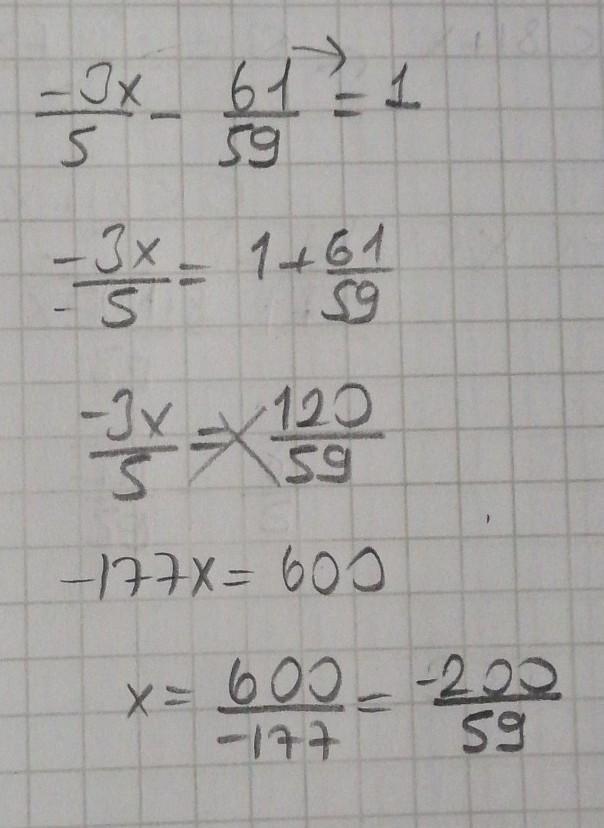 -3x/5 - 61/59 = 1
-3x/5 = 1 + 61/59
-3x/5 = 120/59
-177x = 600
x = 600/-177 = -200/59